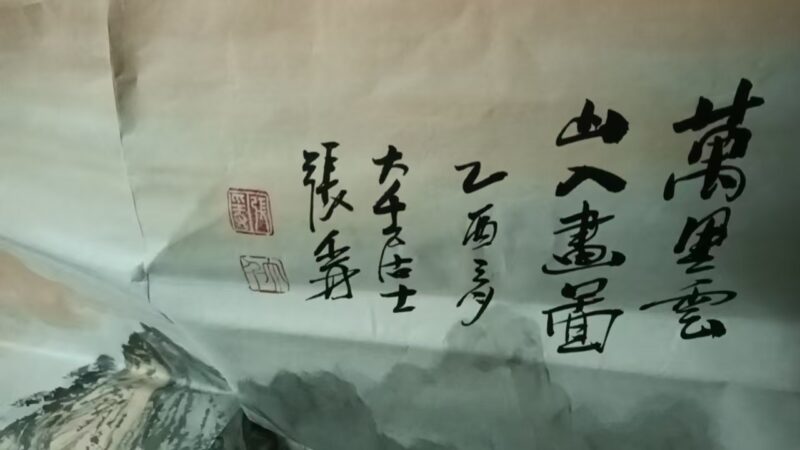 萬里雲
山入畫圖
乙酉
大千居士
張爰